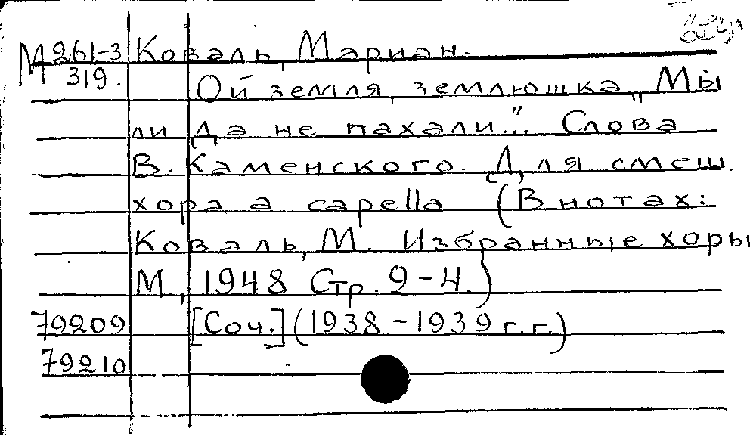 М 261-3 Коваль, Мариан.
319. Ой земля, землюшка „Мы
ли да не пахали..." Слова
В. Каменского. Для смеш.
хора a capella (В нотах:
Коваль, М. Избранные хоры
М., 1948 Стр. 2-4.)
79209 [Соч.] (1938-1939 г.г.)
79210